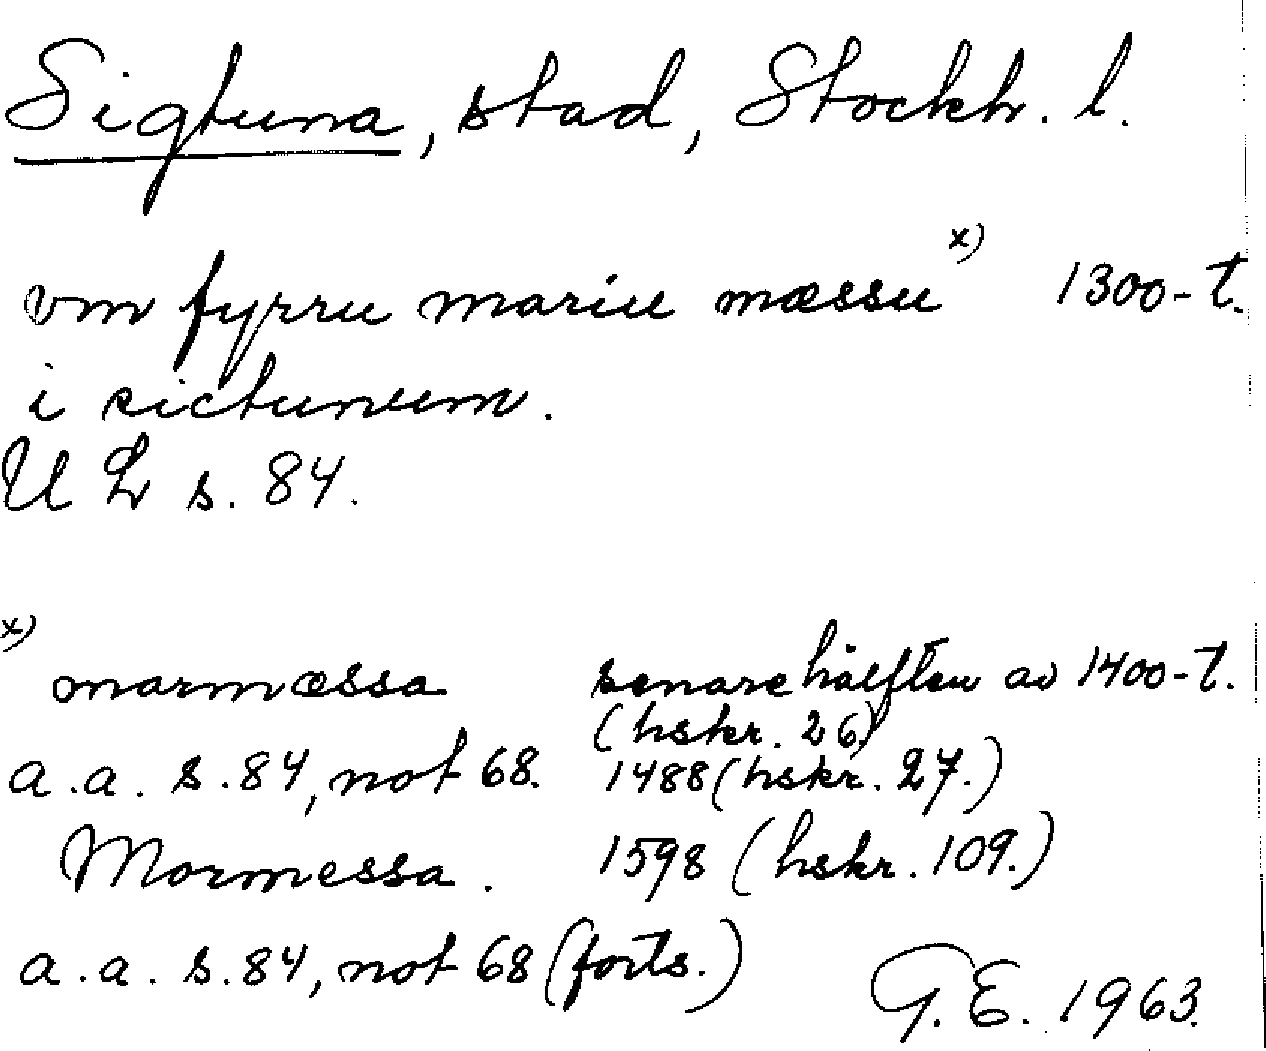 Sigtuna, stad, Stockh. l.
vm fyrru mariu mæssu x) 1300-t.
i sictunum.
UL s. 84.
x) marmæssa senare hälften av 1400-t.
(hskr. 26)
a.a. s. 84, not 68. 1488 (hskr. 27.)
Mormessa. 1598 (hskr. 109.)
a.a. s. 84, not 68 (forts.)
G.E. 1963.